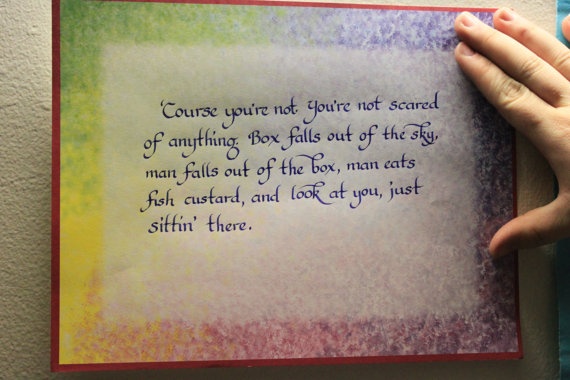 'Course you're not. You're not scared
of anything. Box falls out of the sky,
man falls out of the box, man eats
fish custard, and look at you, just
sittin' there.